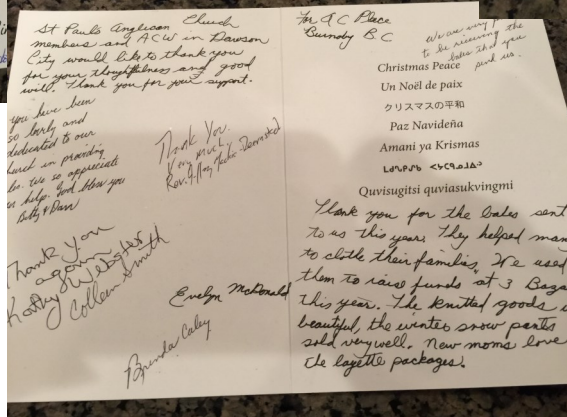 St Pauls Anglican Church
members and ACW in Dawson
City would like to thank you
for your thoughtfulness and good
will. Thank you for your support.
you have been
so lovely and
dedicated to our
church in providing
We so appreciate
help. God bless you
Betty & Dan
Thank You
Very much
Rev.
Thank You
again
Kathy Webster
Colleen Smith
Evelyn McDonald
Brenda Caley
for A C Place
Burnaby B.C
We are very
to be receiving the
bales that you
send us.
Christmas Peace
Un Noël de paix
クリスマスの平和
Paz Navideña
Amani ya Krismas
Quvisugitsi quviasukvingmi
Thank you for the bales sent
to us this year. They helped man
to clothe their families. We used
them to raise funds at 3 Baza
this year. The knitted goods
beautiful, the winter snow pants
sold very well. New moms love
the layette packages.